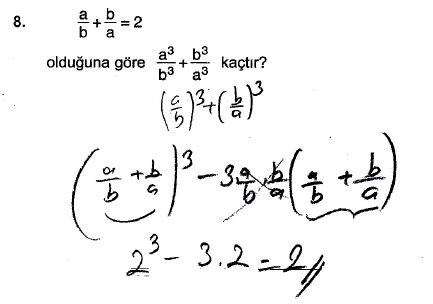 8. a/b + b/a = 2
olduğuna göre a³/b³ + b³/a³ kaçtır?
(a/b)³ + (b/a)³
(a/b + b/a)³ - 3 a/b · b/a (a/b + b/a)
2³ - 3.2 = 2 //